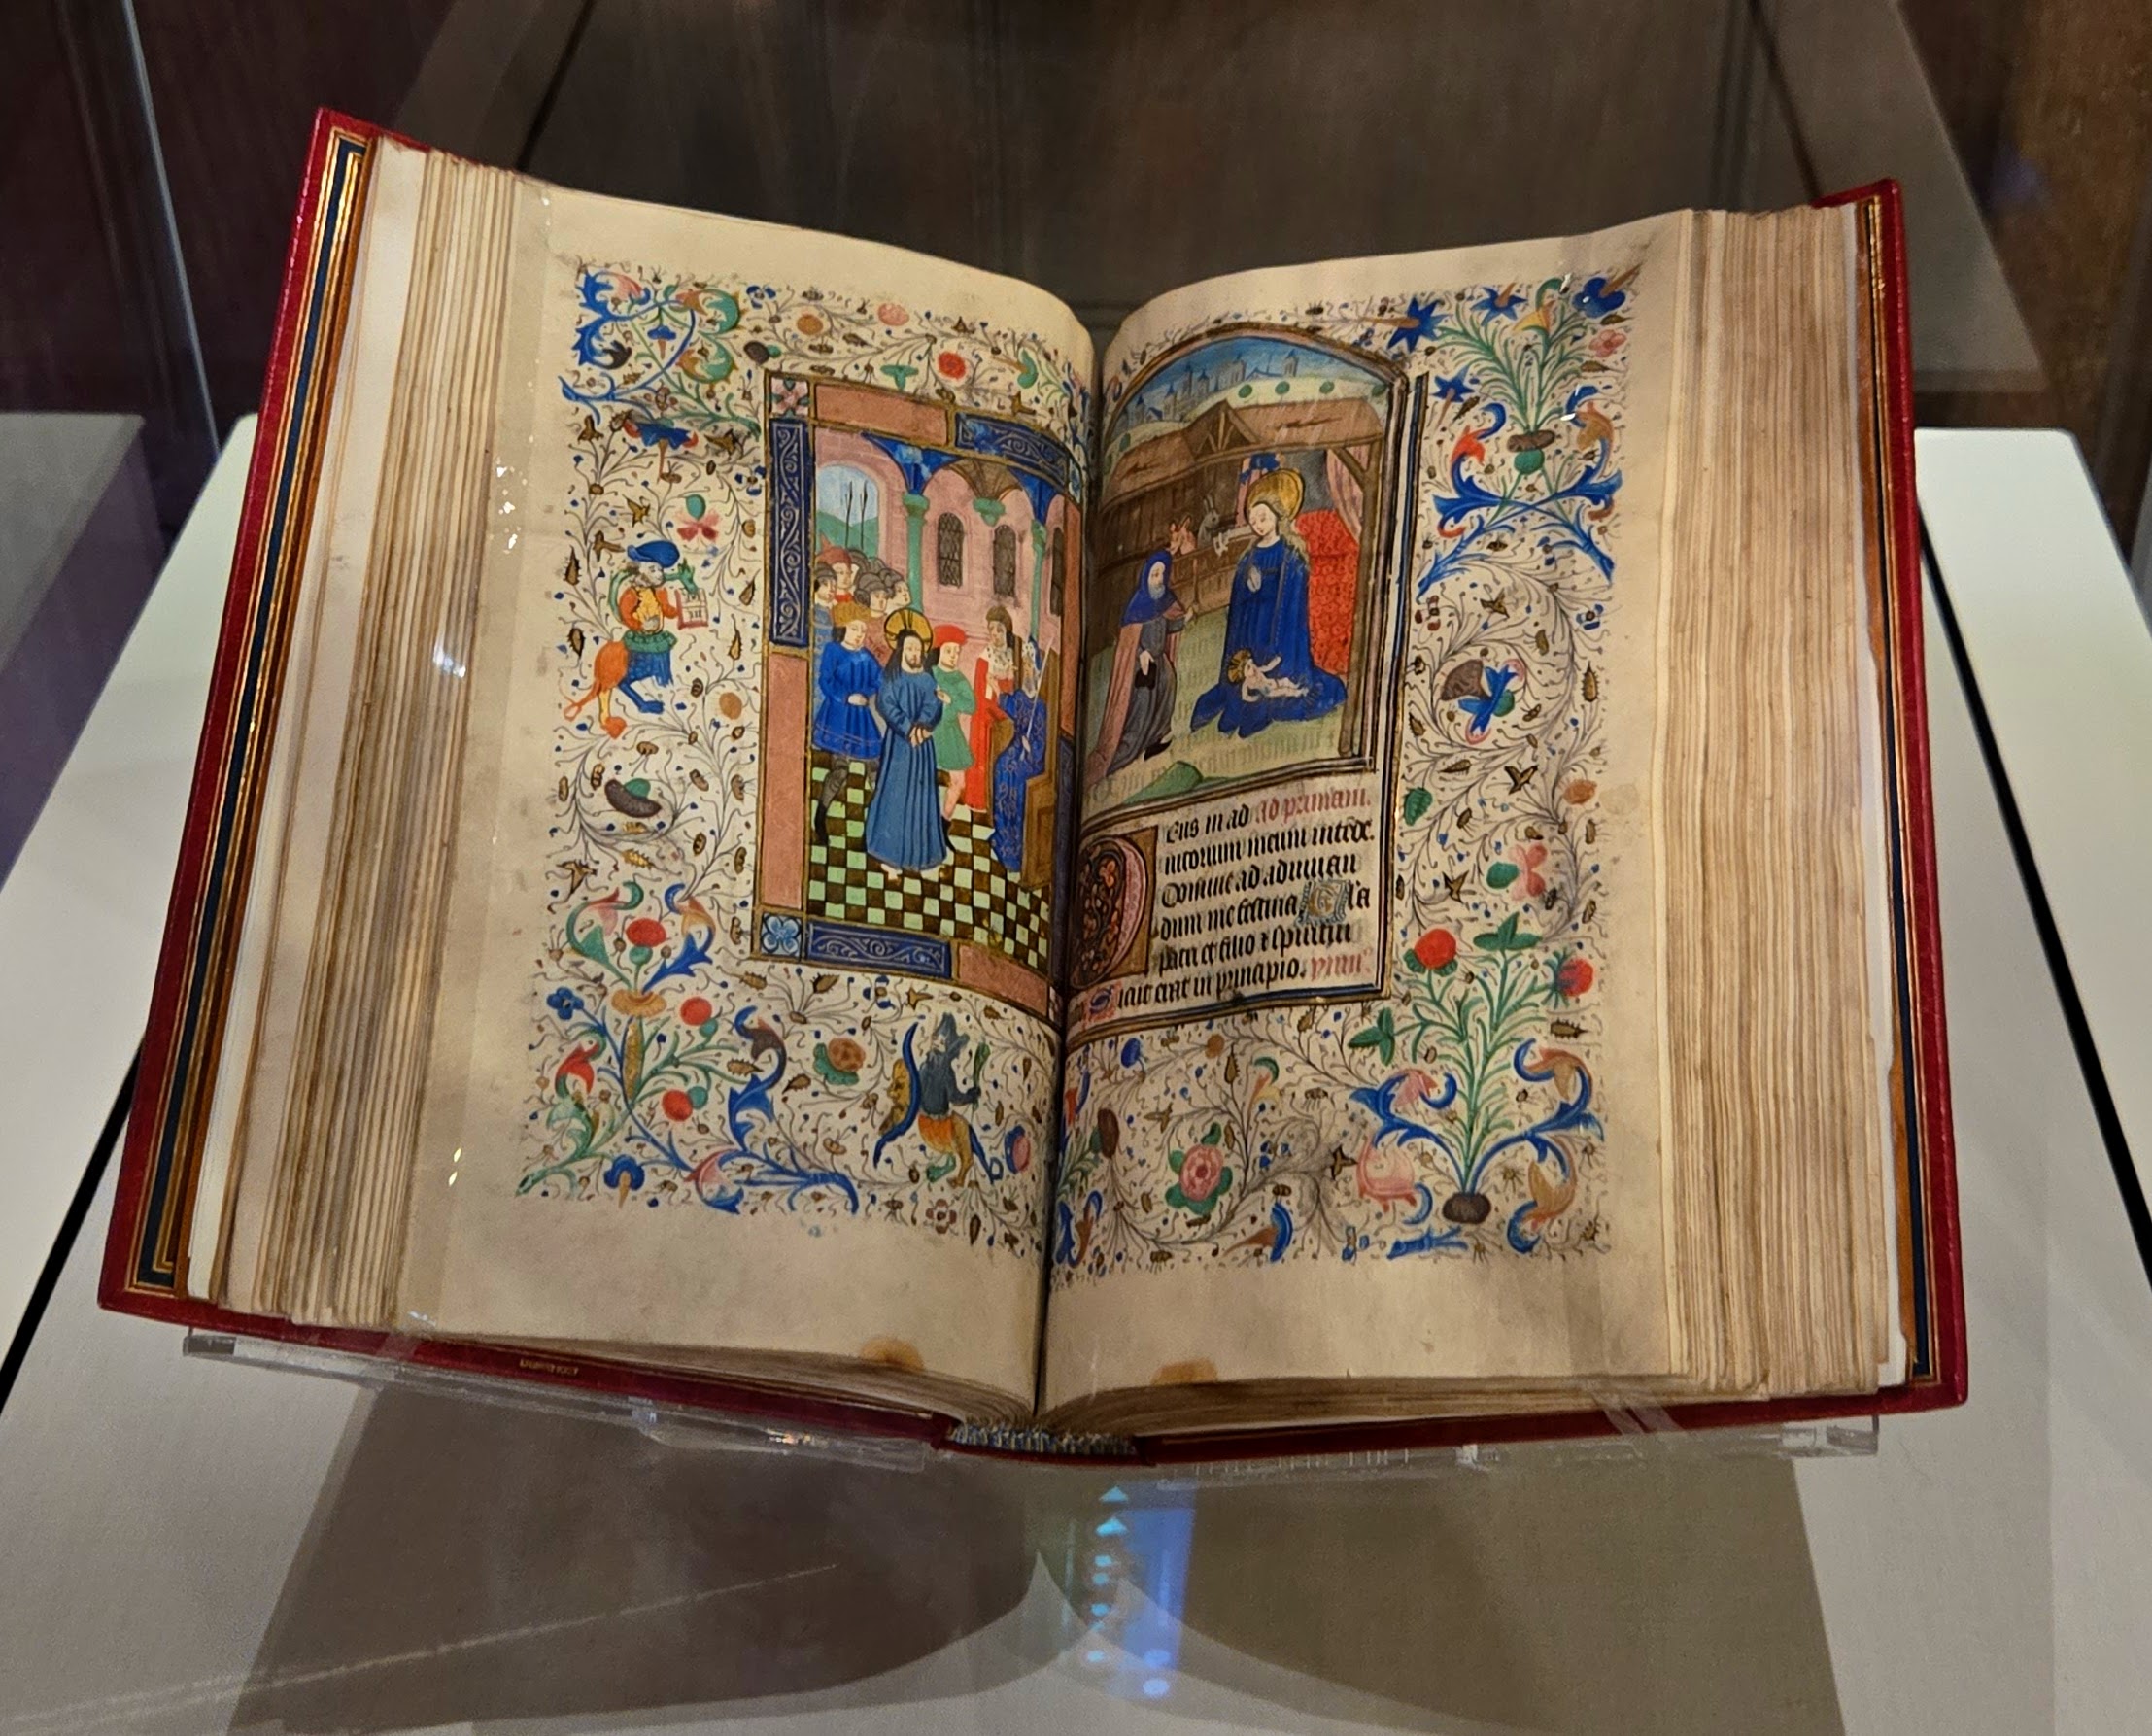 Eus in ad ad primam.
iutorium meum intēde.
Domine ad adiuuan
dum me festina Gla
patri et filio et spiritui
Sicut erat in principio.